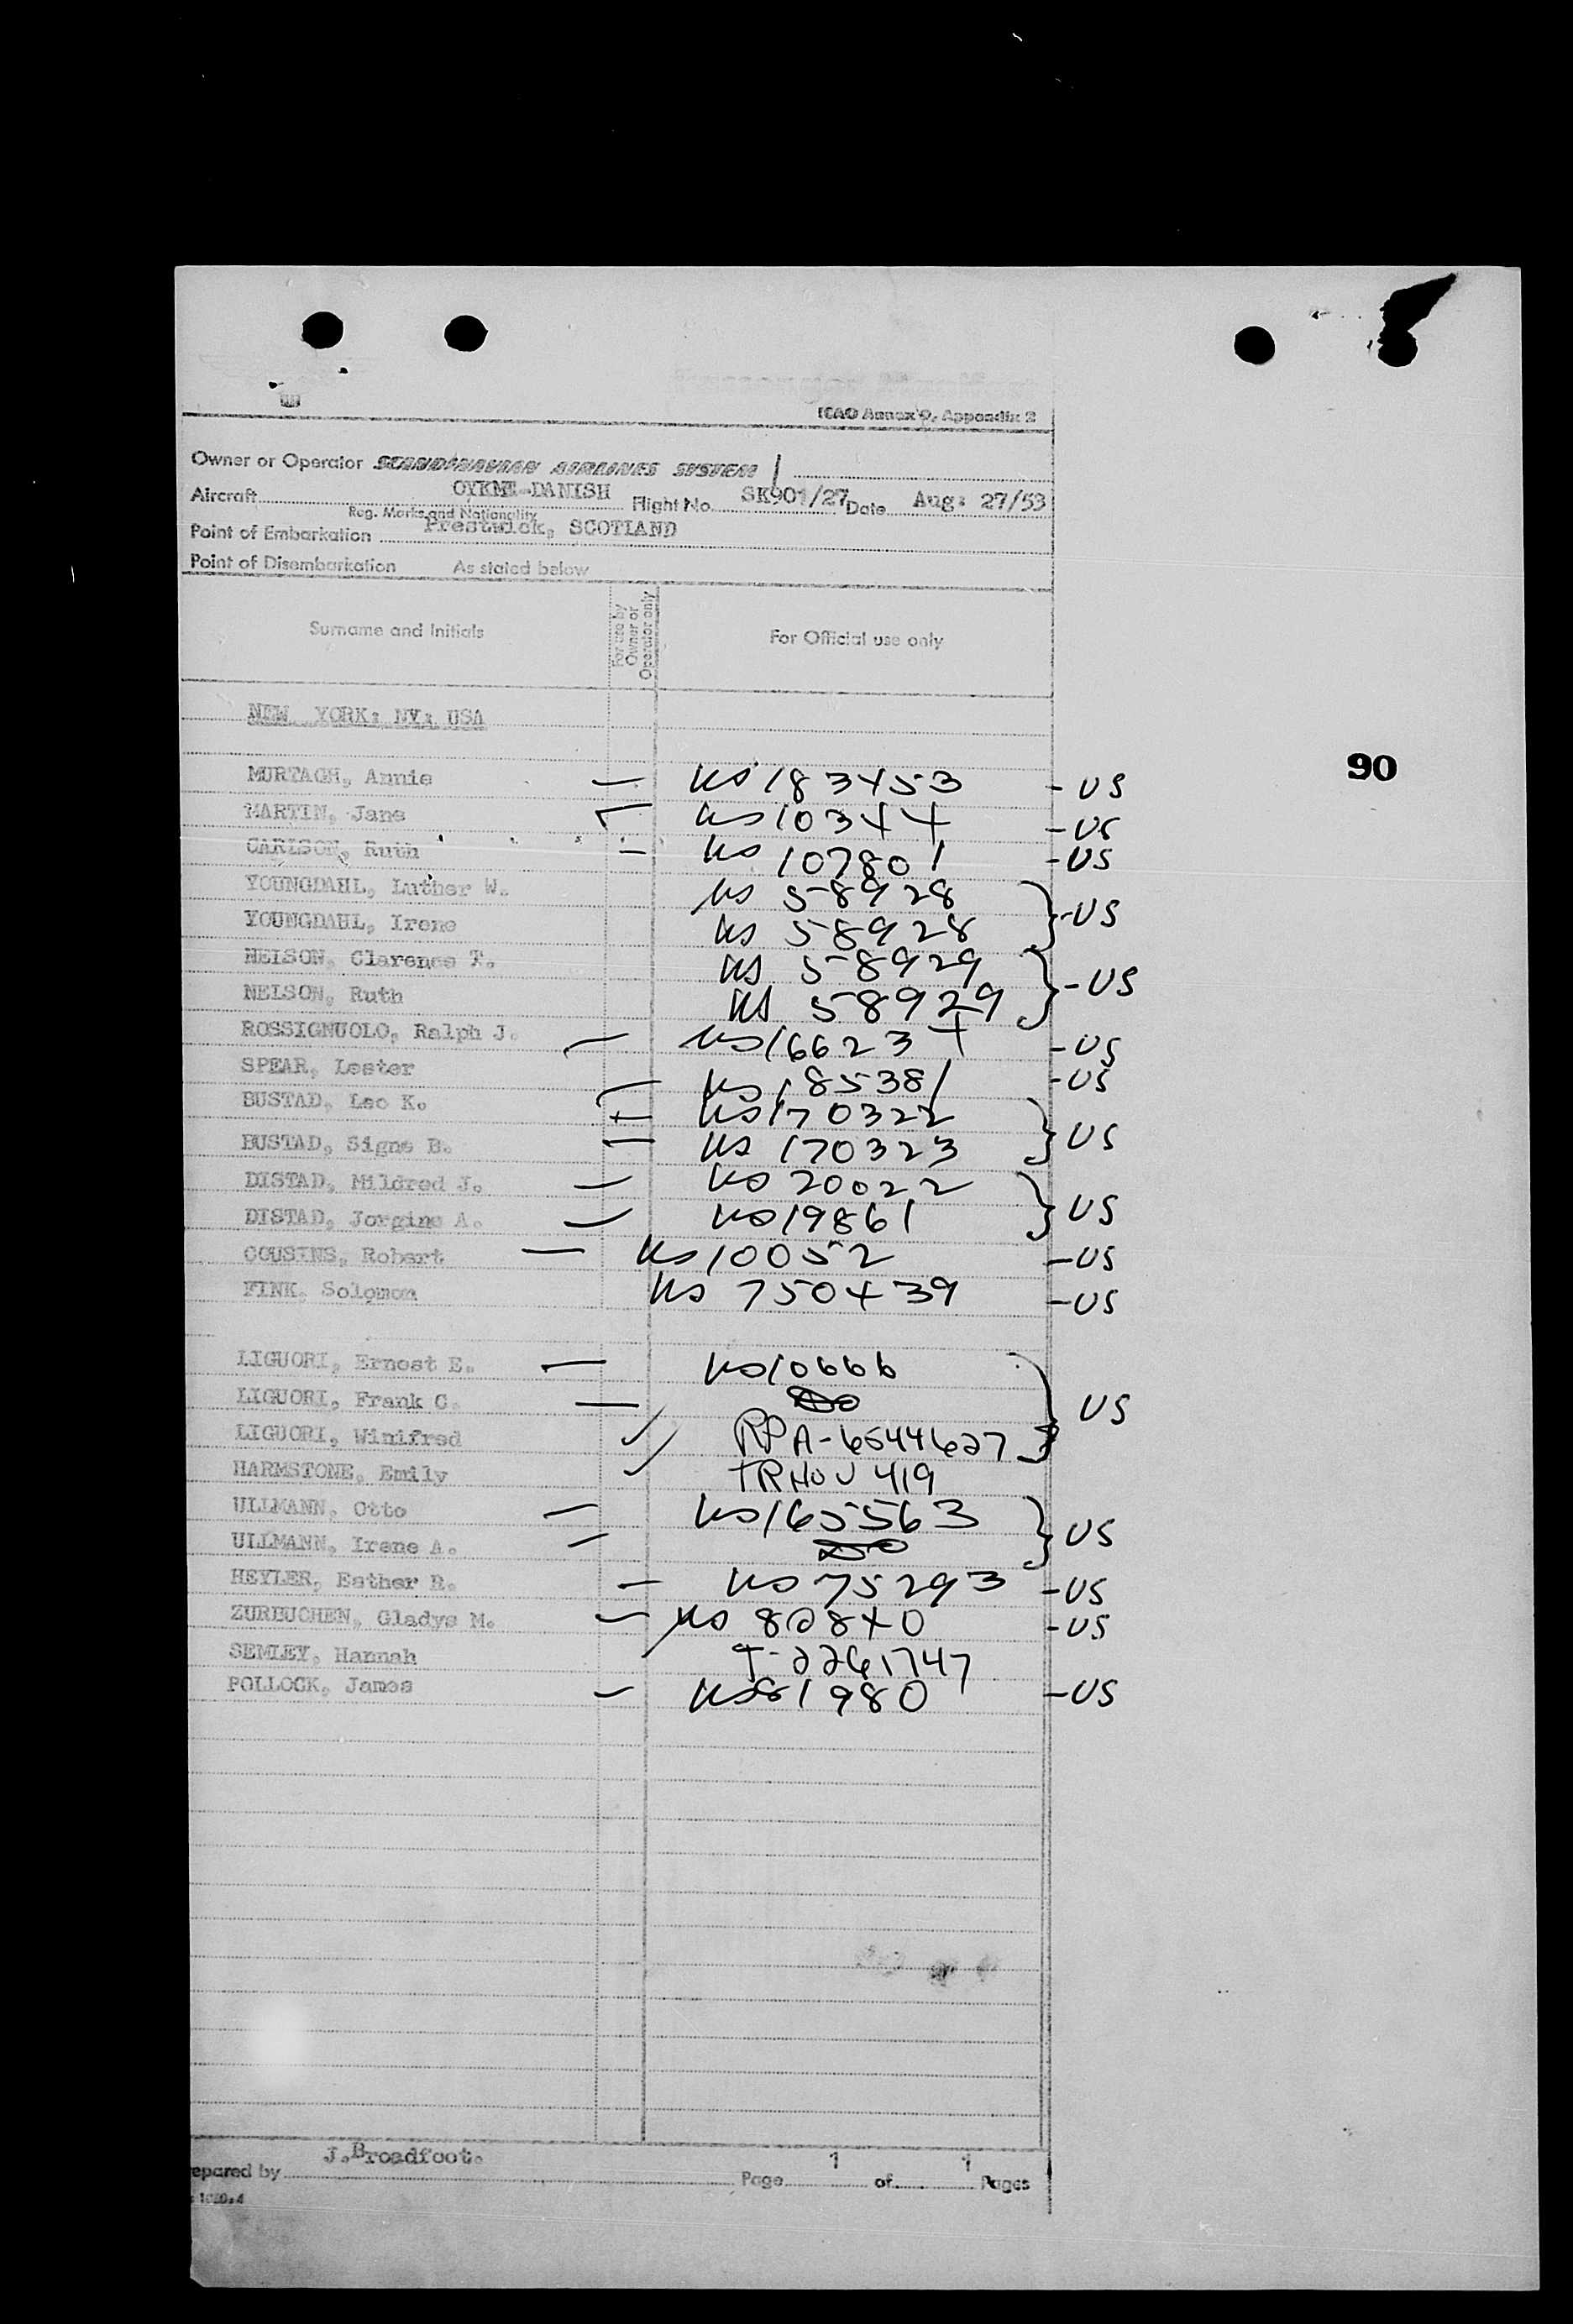 ICAO Annex 9, Appendix 2
Owner or Operator SCANDINAVIAN AIRLINES SYSTEM
Aircraft OYKME-DANISH Flight No. SK901/27 Date Aug: 27/53
Reg. Marks and Nationality
Point of Embarkation Prestwick, SCOTLAND
Point of Disembarkation As stated below
Surname and Initials For use by Owner or Operator only For Official use only
NEW YORK: NY: USA
90
MURTAGH, Annie — US 183453 - US
MARTIN, Jane US 10344 - US
CARLSON, Ruth — US 107801 - US
YOUNGDAHL, Luther W. US 58928
YOUNGDAHL, Irene US 58928 } - US
NELSON, Clarence T. US 58929
NELSON, Ruth US 58929 } - US
ROSSIGNUOLO, Ralph J. — US 166234 - US
SPEAR, Lester — US 185381 - US
BUSTAD, Leo K. — US 170322
BUSTAD, Signe B. — US 170323 } US
DISTAD, Mildred J. — US 20022
DISTAD, Jorgine A. — US 19861 } US
COUSINS, Robert — US 10052 - US
FINK, Solomon US 750439 - US
LIGUORI, Ernest E. — US 10666
LIGUORI, Frank C. — Do } US
LIGUORI, Winifred ✓ RPA-6544627
HARMSTONE, Emily ✓ TRHOU 419
ULLMANN, Otto — US 165563
ULLMANN, Irene A. — Do } US
HEYLER, Esther R. — US 75293 - US
ZURBUCHEN, Gladys M. — US 82840 - US
SEMLEY, Hannah T-2261747
POLLOCK, James — US 81980 - US
J. Broadfoot.
epared by Page 1 of 1 Pages